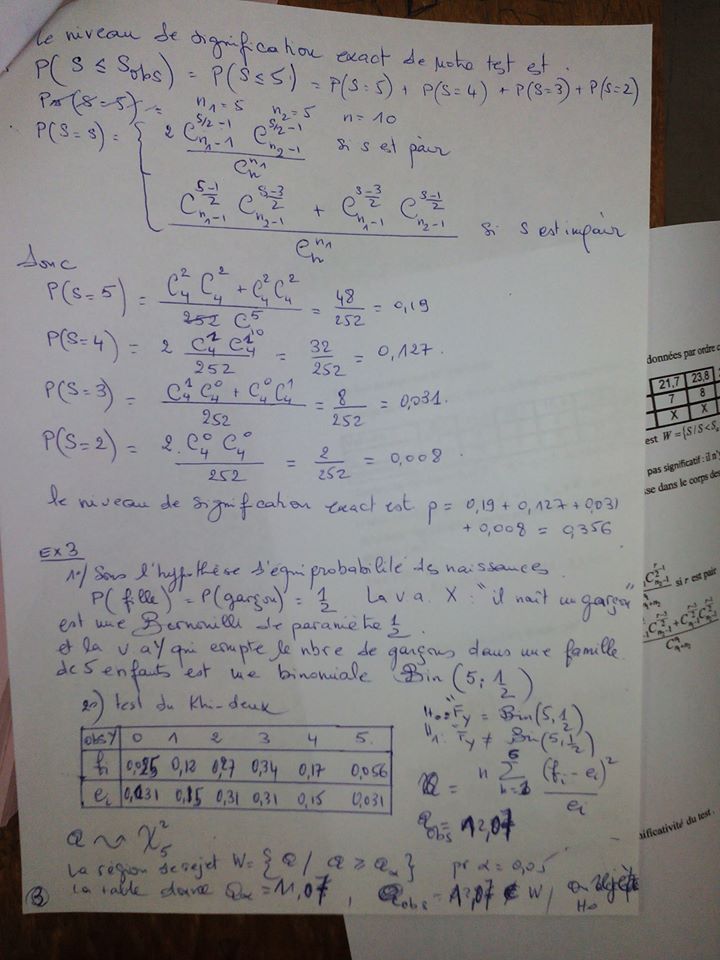 le niveau de signification exact de notre test est.
P(S ≤ Sobs) = P(S ≤ 5) = P(S=5) + P(S=4) + P(S=3) + P(S=2)
n₁ = 5 n₂ = 5 n = 10
P(S=s) = { 2 C_{n₁-1}^{s/2-1} C_{n₂-1}^{s/2-1} / C_n^{n₁} si s est pair
C_{n₁-1}^{(s-1)/2} C_{n₂-1}^{(s-3)/2} + C_{n₁-1}^{(s-3)/2} C_{n₂-1}^{(s-1)/2} / C_n^{n₁} si s est impair
Donc
P(S=5) = C_4^2 C_4^2 + C_4^2 C_4^2 / C_{10}^5 = 48/252 = 0,19
P(S=4) = 2 C_4^1 C_4^1 / 252 = 32/252 = 0,127.
P(S=3) = C_4^1 C_4^0 + C_4^0 C_4^1 / 252 = 8/252 = 0,031.
P(S=2) = 2. C_4^0 C_4^0 / 252 = 2/252 = 0,008.
le niveau de signification exact est p = 0,19 + 0,127 + 0,031
+ 0,008 = 0,356
EX 3
1°/ Sous l'hypothèse d'équiprobabilité des naissances.
P(fille) = P(garçon) = 1/2 La v a. X : "il naît un garçon"
est une Bernouilli de paramètre 1/2.
et la v a Y qui compte le nbre de garçons dans une famille
de 5 enfants est une binomiale Bin(5; 1/2)
2°) test du Khi-deux
H₀: "F_Y = Bin(5,1/2)
H₁: F_Y ≠ Bin(5,1/2)
obs Y 0 1 2 3 4 5.
fi 0,025 0,18 0,27 0,34 0,17 0,056
ei 0,031 0,15 0,31 0,31 0,15 0,031
Q = n Σ (fi - ei)² / ei
Qobs = 12,07
Q ~ χ²₅
La région de rejet W = {Q / Q ≥ Qα} pr α = 0,05
la table donne Qα = 11,07, Qobs = 12,07 ∈ W, on rejète
H₀
3
données par ordre c
21,7 23,8
7 8
X X
est W = {S / S < S
pas significatif : il n'y
se dans le corps des
si r est pair
ificativité du test.